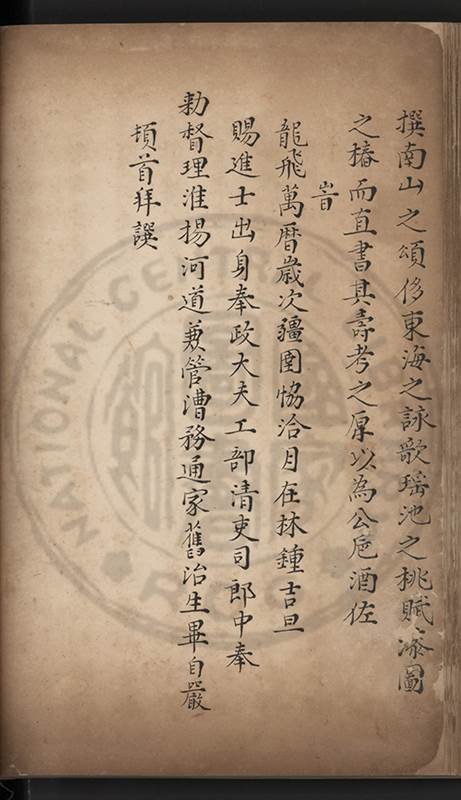 撰南山之頌侈東海之詠歌瑶池之桃賦漆圖
之椿而直書其壽考之厚以為公巵酒佐
旹
龍飛萬曆歲次彊圉恊洽月在林鍾吉旦
賜進士出身奉政大夫工部清吏司郎中奉
勑督理淮揚河道兼管漕務通家舊治生畢自嚴
頓首拜譔
NATIONAL CENTR